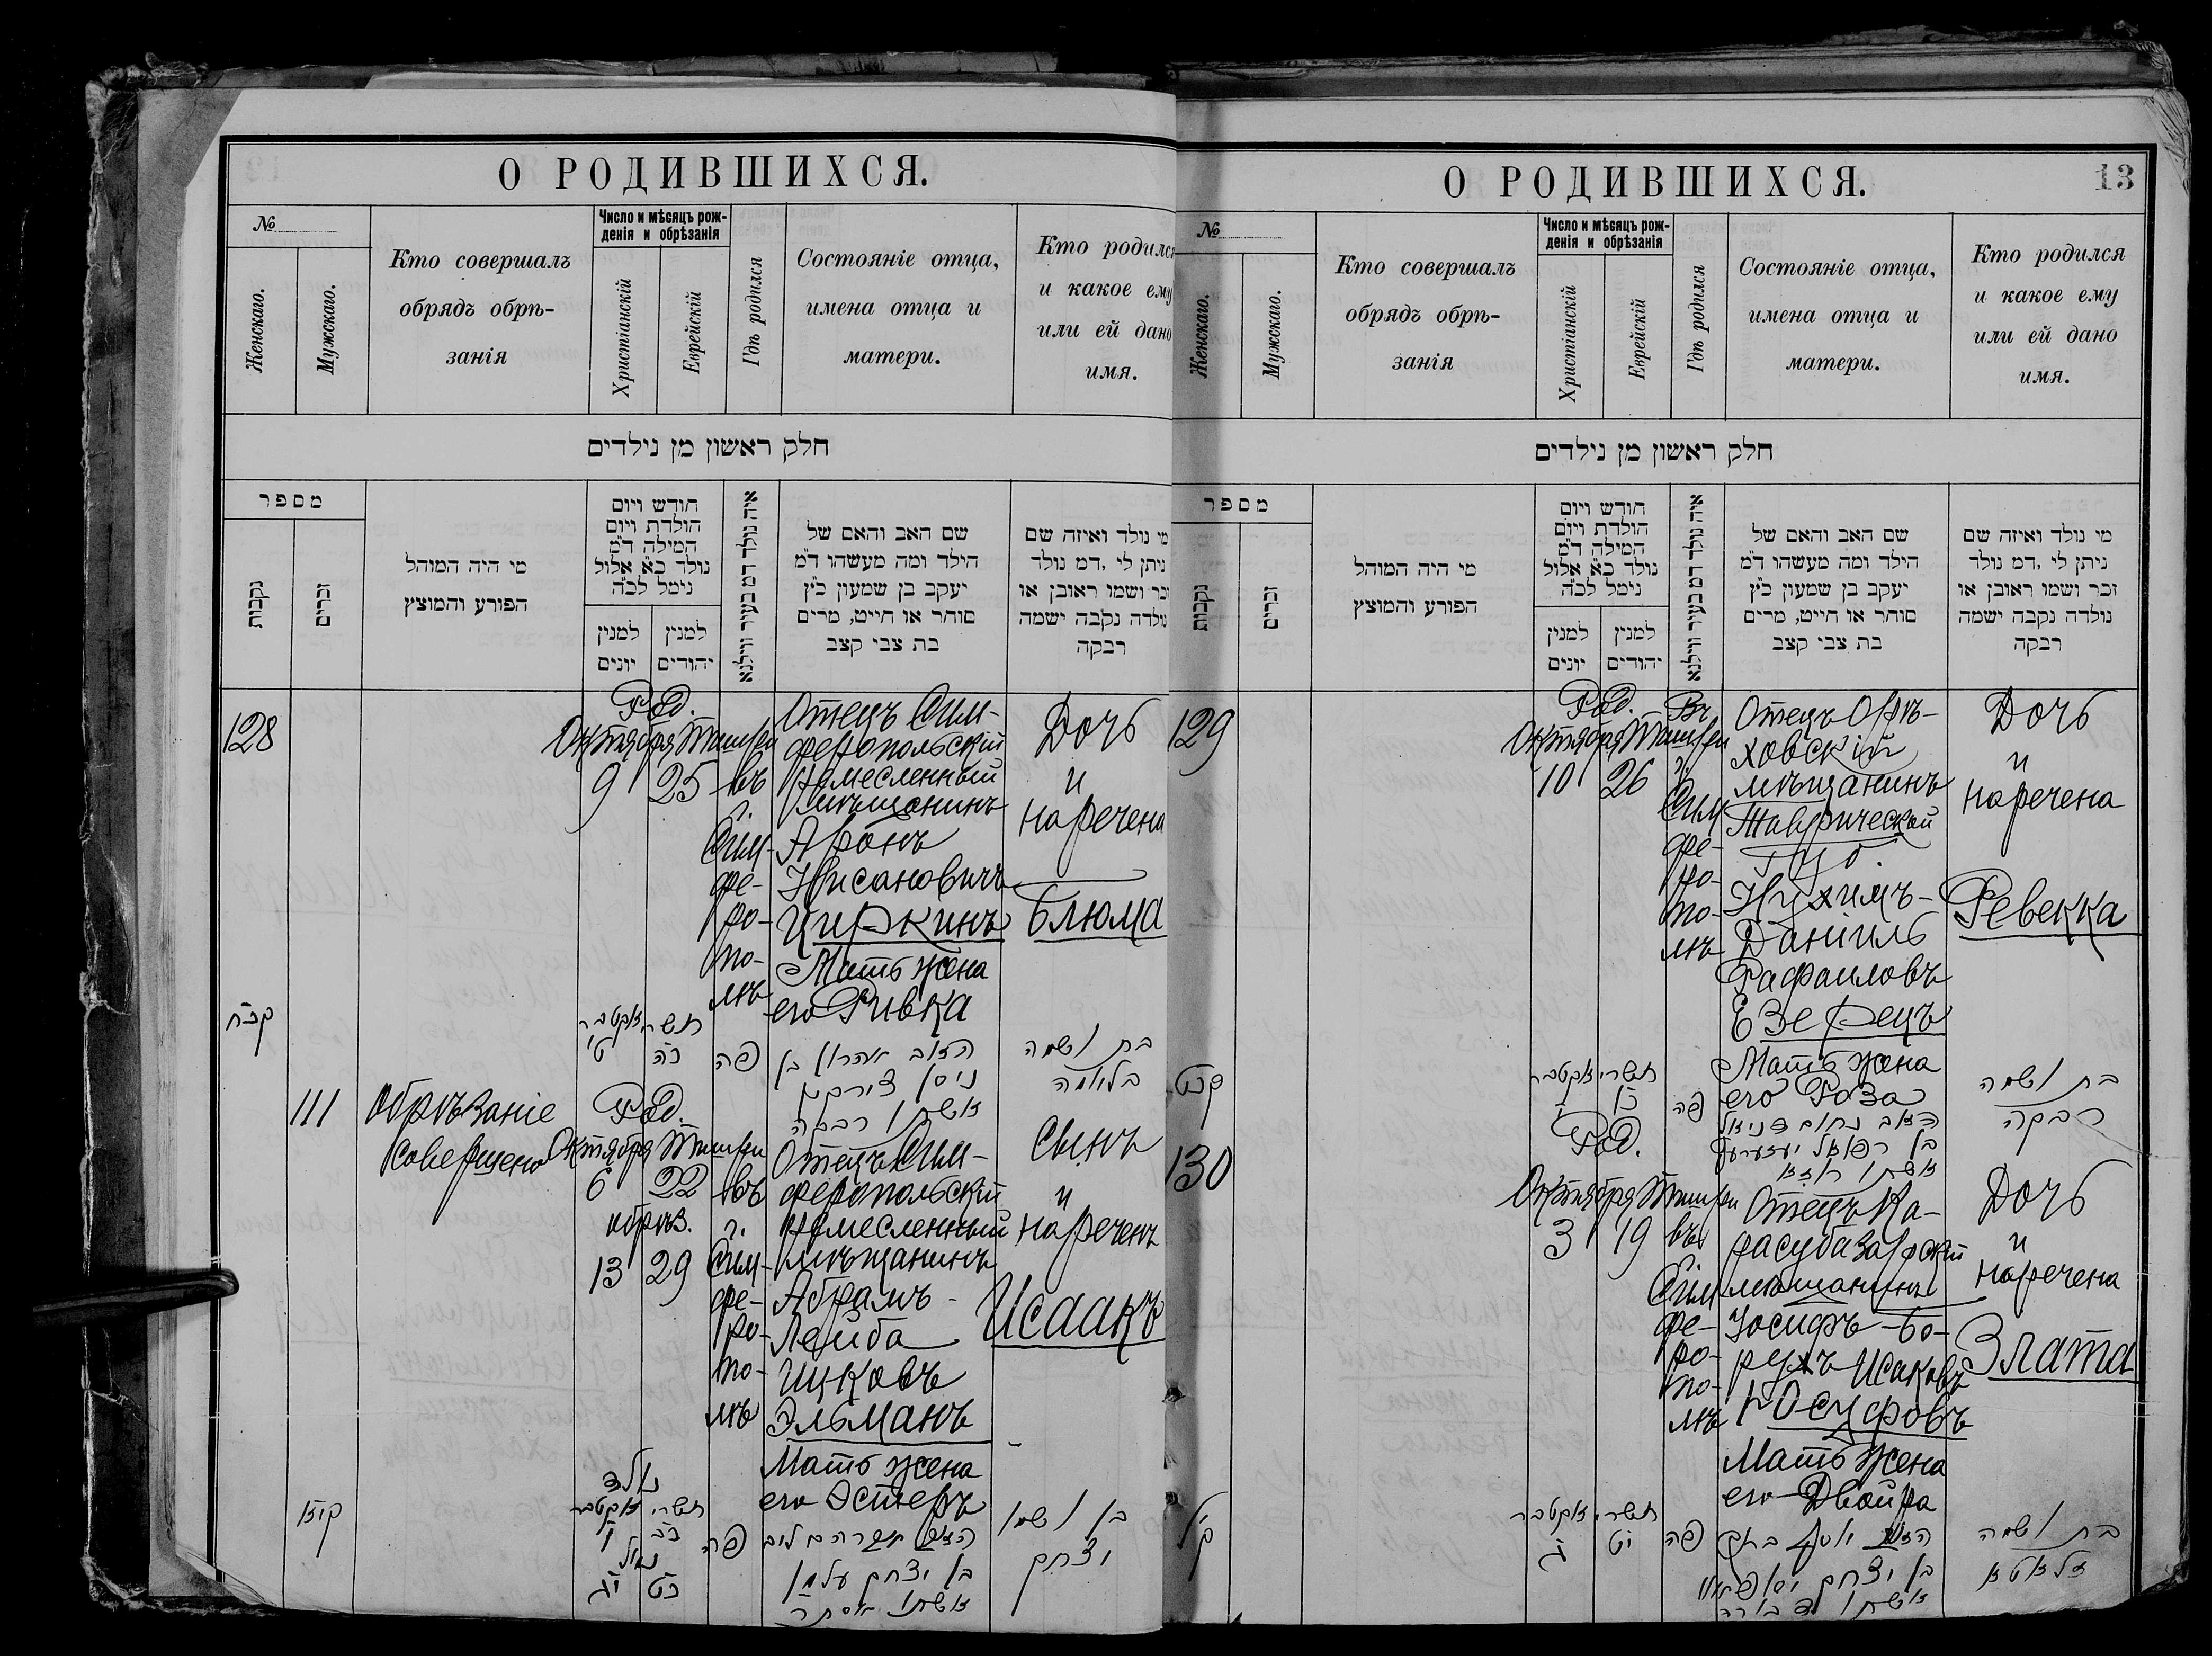 О РОДИВШИХСЯ.
№
Женскаго.
Мужскаго.
Кто совершалъ
обрядъ обрѣ-
занія
Число и мѣсяцъ рож-
денія и обрѣзанія
Христіанскій
Еврейскій
Гдѣ родился
Состояніе отца,
имена отца и
матери.
Кто родился
и какое ему
или ей дано
имя.
חלק ראשון מן נילדים
מספר
נקבות
זכרים
מי היה המוהל
הפורע והמוצץ
חודש ויום
הולדת ויום
המילה ד״מ
נולד כ״א אלול
נימל לכ״ה
למנין
יונים
למנין
יהודים
איה נולד דמ בעיר ווילנא
שם האב והאם של
הילד ומה מעשהו ד״מ
יעקב בן שמעון כ״ץ
סוחר או חייט, מרים
בת צבי קצב
מי נולד ואיזה שם
ניתן לי, דמ נולד
זכר ושמו ראובן או
נולדה נקבה ישמה
רבקה
128
Род.
Октября Тишри
9 25
въ
г.
Сим-
фе-
ро-
по-
лѣ
Отецъ Сим-
феропольскій
Ремесленный
мѣщанинъ
Аронъ
Нисановичъ
Циркинъ
Мать жена
его Ривка
Дочь
и
наречена
Блюма
קכח
אקטבר תשרי
ט כה
פה
האב אהרון בן
ניסן צירקין
אשתו רבקה
בת ושמה
בליומה
111
Обрѣзаніе
совершено
Род.
Октября Тишри
6 22
обрѣз.
13 29
въ
г.
Сим-
фе-
ро-
по-
лѣ
Отецъ Сим-
феропольскій
Ремесленный
мѣщанинъ
Абрамъ-
Лейба
Ицковъ
Эльманъ
Мать жена
его Эстеръ
Сынъ
и
нареченъ
Исаакъ
קיא
נולד
אקטבר תשרי
ו כב
נימול
יג כט
פה
האב אברהם ליב
בן יצחק עלמן
אשתו אסתר
בן ושמו
יצחק
О РОДИВШИХСЯ.
13
№
Женскаго.
Мужскаго.
Кто совершалъ
обрядъ обрѣ-
занія
Число и мѣсяцъ рож-
денія и обрѣзанія
Христіанскій
Еврейскій
Гдѣ родился
Состояніе отца,
имена отца и
матери.
Кто родился
и какое ему
или ей дано
имя.
חלק ראשון מן נילדים
מספר
נקבות
זכרים
מי היה המוהל
הפורע והמוצץ
חודש ויום
הולדת ויום
המילה ד״מ
נולד כ״א אלול
נימל לכ״ה
למנין
יונים
למנין
יהודים
איה נולד דמ בעיר ווילנא
שם האב והאם של
הילד ומה מעשהו ד״מ
יעקב בן שמעון כ״ץ
סוחר או חייט, מרים
בת צבי קצב
מי נולד ואיזה שם
ניתן לי, דמ נולד
זכר ושמו ראובן או
נולדה נקבה ישמה
רבקה
129
Род.
Октября Тишри
10 26
Въ
г.
Сим
фе-
ро-
по-
лѣ
Отецъ Орѣ-
ховскій
мѣщанинъ
Таврической
губ.
Нухимъ-
Даніилъ
Рафаиловъ
Езерецъ
Мать жена
его Роза
Дочь
и
наречена
Ревекка
קכט
אקטבר תשרי
י כו
פה
האב נחום דניאל
בן רפאל יעזערעץ
אשתו ראזא
בת ושמה
רבקה
130
Род.
Октября Тишри
3 19
въ
г.
Сим
фе-
ро-
по-
лѣ
Отецъ Ка-
расубазарскій
мѣщанинъ
Іосифъ-Бо-
рухъ Исаковъ
Юсуфовъ
Мать жена
его Двойра
Дочь
и
наречена
Злата
קל
אקטבר תשרי
ג יט
פה
האב יוסף ברוך
בן יצחק
אשתו דבורה
בת ושמה
זלאטא